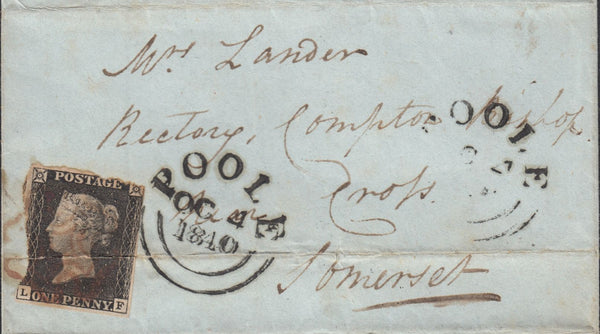 Mrs Lander
Rectory, Compton Bishop
Cross
Somerset
POSTAGE
ONE PENNY
L F
POOLE
OC 4
1840
POOLE